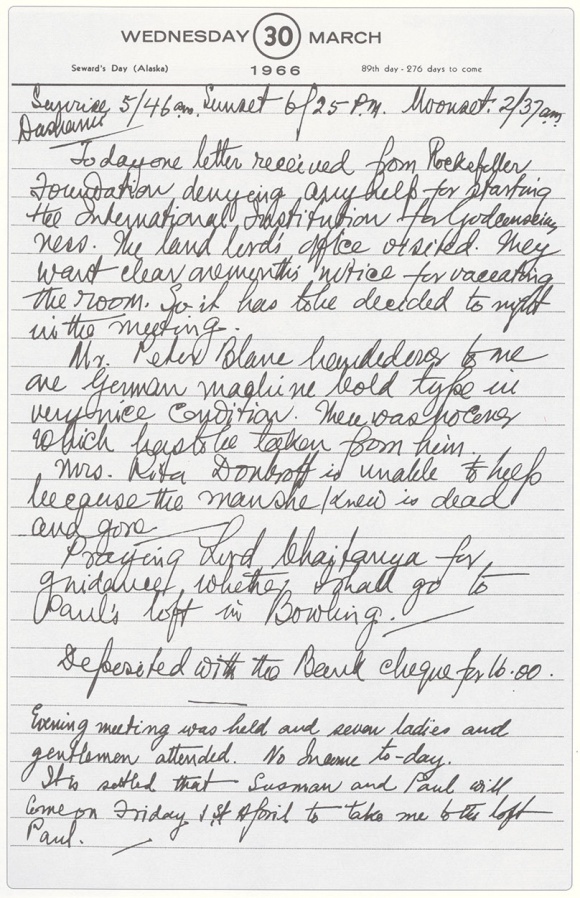 WEDNESDAY 30 MARCH
Seward's Day (Alaska) 1966 89th day - 276 days to come
Sunrise 5/46 am. Sunset 6/25 P.M. Moonset: 2/37 am
Dashami
To day one letter received from Rockefeller
Foundation denying any help for starting
the International Institution for Godconscious
ness. The land lord's office visited. They
want clear one month's notice for vaccating
the room. So it has to be decided to night
in the meeting.
Mr. Peter Blane handed over to me
one German machine bold type in
very nice condition. There was no cover
which has to be taken from him.
Mrs. Rita is unable to help
because the man she knew is dead
and gone
Praying Lord Chaitanya for
guidance, whether I shall go to
Paul's loft in Bowling.
Deposited with the Bank cheque for 16.00.
Evening meeting was held and seven ladies and
gentlemen attended. No Income to-day.
It is settled that and Paul will
come on Friday 1st April to take me to the loft
Paul.